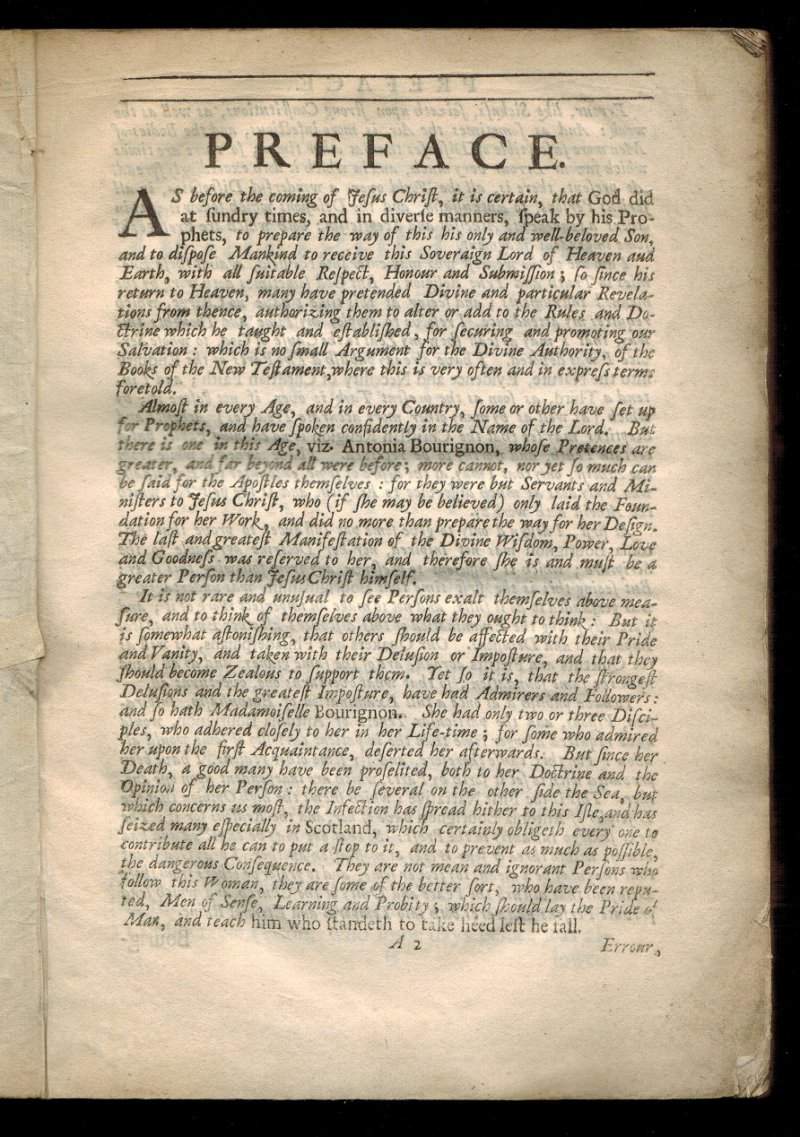 PREFACE.
AS before the coming of Jeſus Chriſt, it is certain, that God did
at ſundry times, and in diverſe manners, ſpeak by his Pro-
phets, to prepare the way of this his only and well-beloved Son,
and to diſpoſe Mankind to receive this Soveraign Lord of Heaven aud
Earth, with all ſuitable Reſpect, Honour and Submiſſion; ſo ſince his
return to Heaven, many have pretended Divine and particular Revela-
tions from thence, authorizing them to alter or add to the Rules and Do-
ctrine which he taught and eſtabliſhed, for ſecuring and promoting our
Salvation: which is no ſmall Argument for the Divine Authority, of the
Books of the New Teſtament,where this is very often and in expreſs terms
foretold.
Almoſt in every Age, and in every Country, ſome or other have ſet up
for Prophets, and have ſpoken confidently in the Name of the Lord. But
there is one in this Age, viz. Antonia Bourignon, whoſe Pretences are
greater, and far beyond all were before; more cannot, nor yet ſo much can
be ſaid for the Apoſtles themſelves: for they were but Servants and Mi-
niſters to Jeſus Chriſt, who (if ſhe may be believed) only laid the Foun-
dation for her Work, and did no more than prepare the way for her Deſign.
The laſt and greateſt Manifeſtation of the Divine Wiſdom, Power, Love
and Goodneſs was reſerved to her, and therefore ſhe is and muſt be a
greater Perſon than Jeſus Chriſt himſelf.
It is not rare and unuſual to ſee Perſons exalt themſelves above mea-
ſure, and to think of themſelves above what they ought to think: But it
is ſomewhat aſtoniſhing, that others ſhould be affected with their Pride
and Vanity, and taken with their Deluſion or Impoſture, and that they
ſhould become Zealous to ſupport them. Yet ſo it is, that the ſtrongeſt
Deluſions and the greateſt Impoſture, have had Admirers and Followers:
and ſo hath Madamoiſelle Bourignon. She had only two or three Diſci-
ples, who adhered cloſely to her in her Life-time; for ſome who admired
her upon the firſt Acquaintance, deſerted her afterwards. But ſince her
Death, a good many have been proſelited, both to her Doctrine and the
Opinion of her Perſon: there be ſeveral on the other ſide the Sea, but
which concerns us moſt, the Infection has ſpread hither to this Iſle,and has
ſeized many eſpecially in Scotland, which certainly obligeth every one to
contribute all he can to put a ſtop to it, and to prevent as much as poſſible,
the dangerous Conſequence. They are not mean and ignorant Perſons who
follow this Woman, they are ſome of the better ſort, who have been repu-
ted, Men of Senſe, Learning and Probity; which ſhould lay the Pride of
Man, and teach him who ſtandeth to take heed leſt he fall.
A 2 Errour,